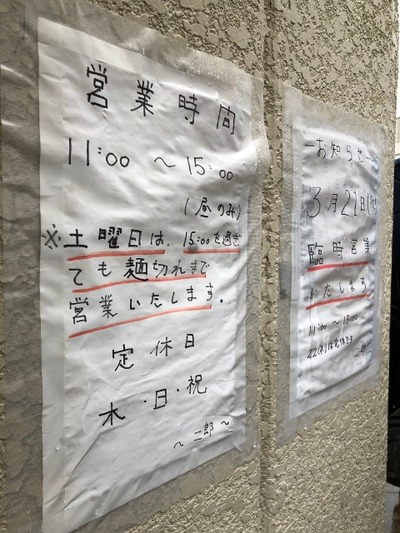 営業時間
11:00 ~ 15:00
(昼のみ)
※土曜日は、15:00を過ぎ
ても麺切れまで
営業いたします。
定休日
木・日・祝
~ 二郎 ~
ーお知らせー
3月21日
臨時営業
いたします
11:00~15:00